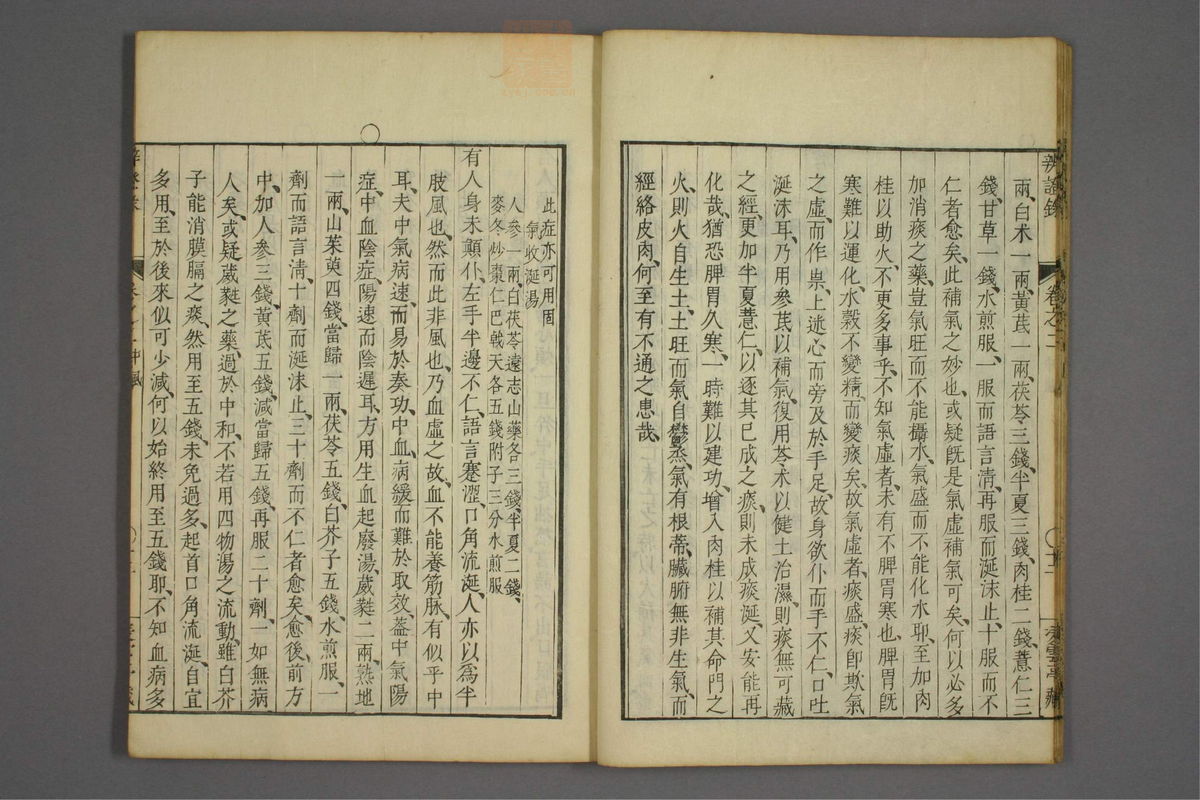 辨證錄 卷之二
兩、白术一兩、黃芪一兩、茯苓三錢、半夏三錢、肉桂二錢、薏仁三
錢、甘草一錢、水煎服、一服而語言淸、再服而涎沫止、十服而不
仁者愈矣、此補氣之妙也、或疑旣是氣虛補氣可矣、何以必多
加消痰之藥、豈氣旺而不能攝水、氣盛而不能化水耶、至加肉
桂以助火、不更多事乎、不知氣虛者、未有不脾胃寒也、脾胃旣
寒難以運化、水穀不變精、而變痰矣、故氣虛者、痰盛、痰卽欺氣
之虛、而作祟、上迷心而旁及於手足、故身欲仆而手不仁、口吐
涎沫耳、乃用參芪以補氣、復用苓术以健土治濕、則痰無可藏
之經、更加半夏薏仁、以逐其已成之痰、則未成痰涎、又安能再
化哉、猶恐脾胃久寒、一時難以建功、增入肉桂以補其命門之
火、則火自生土、土旺而氣自鬱蒸、氣有根蒂、臟腑無非生氣、而
經絡皮肉、何至有不通之患哉、
此症亦可用固
氣收涎湯
人參一兩、白茯苓遠志山藥各三錢、半夏二錢、
麥冬炒棗仁巴戟天各五錢附子三分水煎服
有人身未顛仆、左手半邊不仁、語言蹇澀、口角流涎、人亦以爲半
肢風也、然而此非風也、乃血虛之故、血不能養筋脉、有似乎中
耳、夫中氣病速、而易於奏功、中血病緩而難於取效、葢中氣陽
症、中血陰症、陽速而陰遲耳、方用生血起廢湯、葳蕤二兩、熟地
一兩、山茱萸四錢、當歸一兩、茯苓五錢、白芥子五錢、水煎服、一
劑而語言淸、十劑而涎沫止、三十劑而不仁者愈矣、愈後前方
中、加人參三錢、黃芪五錢、減當歸五錢、再服二十劑、一如無病
人矣、或疑葳蕤之藥、過於中和、不若用四物湯之流動、雖白芥
子能消膜膈之痰、然用至五錢、未免過多、起首口角流涎、自宜
多用、至於後來似可少減、何以始終用至五錢耶、不知血病多